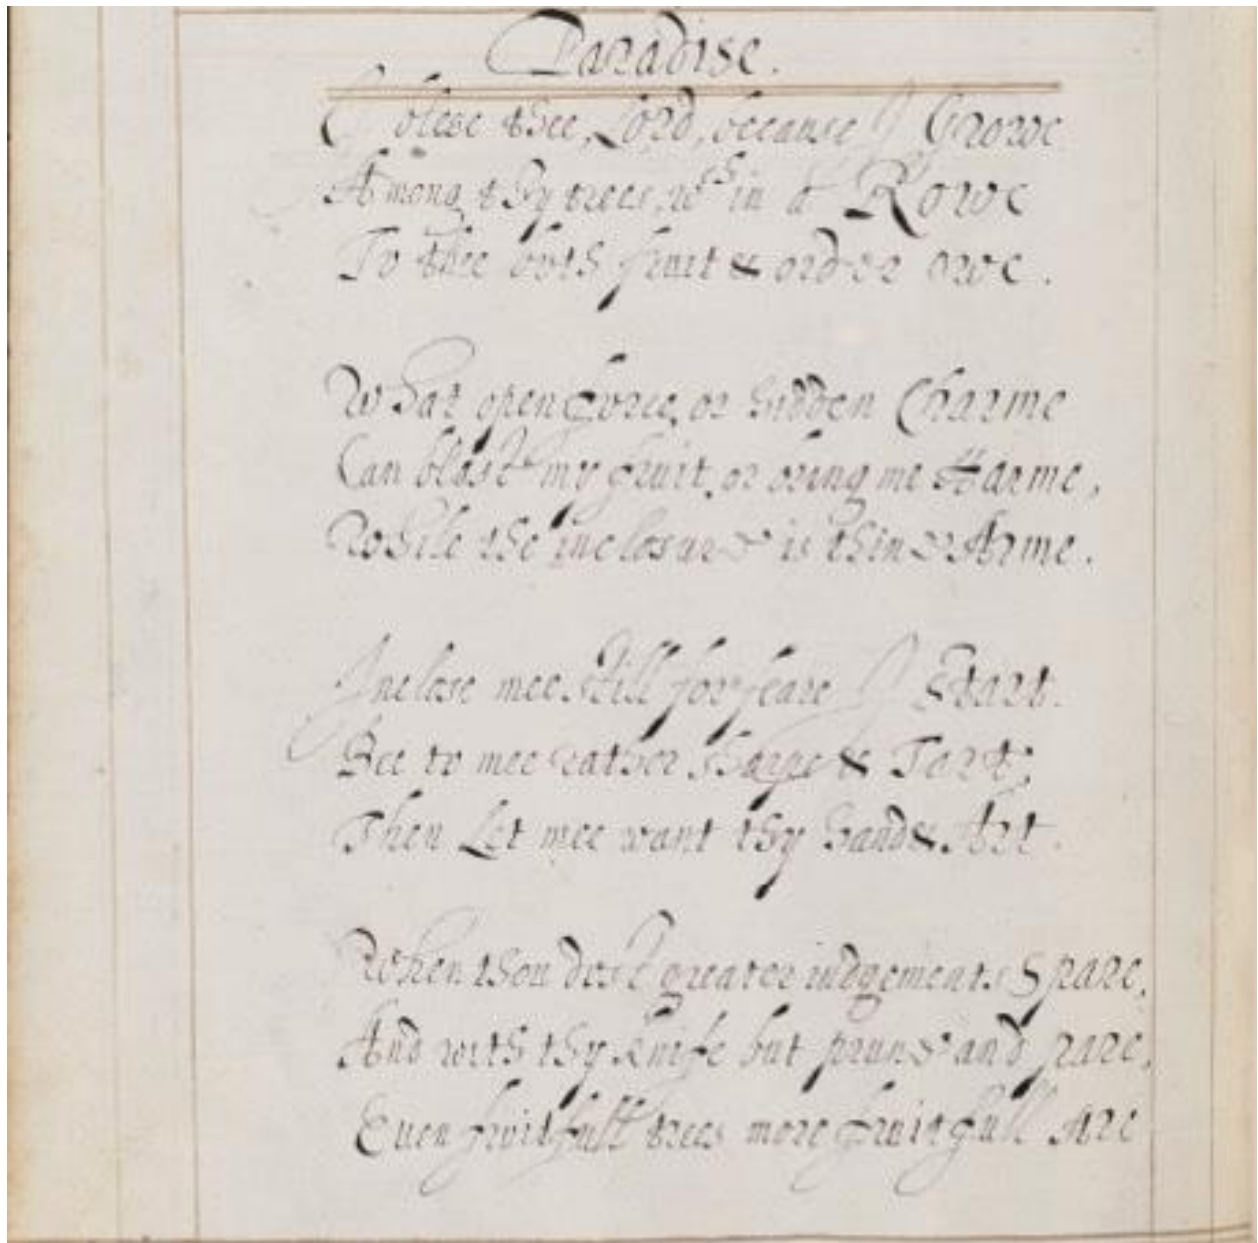 Paradise.
I blesse thee, Lord, because I Growe
Among thy trees, wch in a Rowe
To thee both fruit & order owe.
What open force, or hidden Charme
Can blast my fruit, or bring me Harme,
While the inclosure is thine Arme.
Inclose mee still for feare I Start.
Bee to mee rather sharpe & Tart,
Then Let mee want thy hand & Art.
When thou dost greater iudgements Spare,
And with thy knife but prune and pare,
Euen fruitfull trees more fruitfull Are